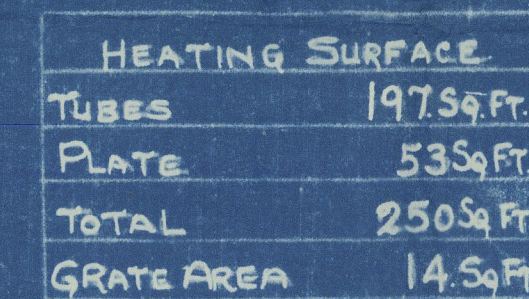 HEATING SURFACE
TUBES 197.SQ.FT.
PLATE 53 SQ FT.
TOTAL 250 SQ FT
GRATE AREA 14. SQ FT